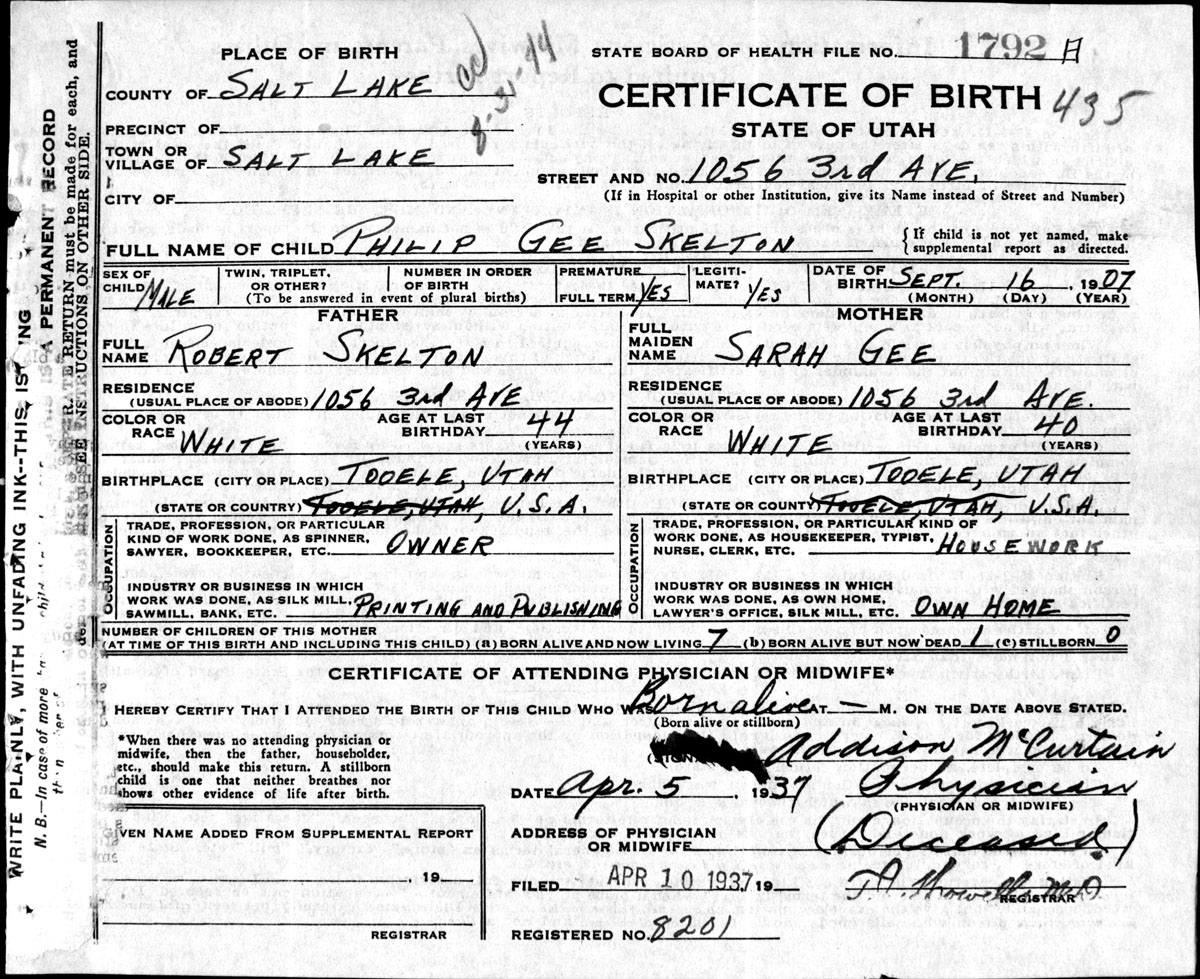 PLACE OF BIRTH
STATE BOARD OF HEALTH FILE NO. 1792
COUNTY OF SALT LAKE
8-31-44
CERTIFICATE OF BIRTH 435
PRECINCT OF
STATE OF UTAH
TOWN OR VILLAGE OF SALT LAKE
STREET AND NO. 1056 3rd AVE.
CITY OF
(If in Hospital or other Institution, give its Name instead of Street and Number)
FULL NAME OF CHILD PHILIP GEE SKELTON
{If child is not yet named, make
supplemental report as directed.
SEX OF CHILD MALE
TWIN, TRIPLET, OR OTHER?
NUMBER IN ORDER OF BIRTH
(To be answered in event of plural births)
PREMATURE
FULL TERM YES
LEGITI-
MATE? YES
DATE OF BIRTH SEPT. 16, 1907
(MONTH) (DAY) (YEAR)
FATHER
FULL NAME ROBERT SKELTON
RESIDENCE
(USUAL PLACE OF ABODE) 1056 3rd AVE
COLOR OR RACE WHITE
AGE AT LAST BIRTHDAY 44
(YEARS)
BIRTHPLACE (CITY OR PLACE) TOOELE, UTAH
(STATE OR COUNTRY) TOOELE, UTAH, U.S.A.
OCCUPATION
TRADE, PROFESSION, OR PARTICULAR
KIND OF WORK DONE, AS SPINNER,
SAWYER, BOOKKEEPER, ETC. OWNER
INDUSTRY OR BUSINESS IN WHICH
WORK WAS DONE, AS SILK MILL,
SAWMILL, BANK, ETC. PRINTING AND PUBLISHING
MOTHER
FULL MAIDEN NAME SARAH GEE
RESIDENCE
(USUAL PLACE OF ABODE) 1056 3rd AVE.
COLOR OR RACE WHITE
AGE AT LAST BIRTHDAY 40
(YEARS)
BIRTHPLACE (CITY OR PLACE) TOOELE, UTAH
(STATE OR COUNTY) TOOELE, UTAH, U.S.A.
OCCUPATION
TRADE, PROFESSION, OR PARTICULAR KIND OF
WORK DONE, AS HOUSEKEEPER, TYPIST,
NURSE, CLERK, ETC. HOUSEWORK
INDUSTRY OR BUSINESS IN WHICH
WORK WAS DONE, AS OWN HOME,
LAWYER'S OFFICE, SILK MILL, ETC. OWN HOME
NUMBER OF CHILDREN OF THIS MOTHER
(AT TIME OF THIS BIRTH AND INCLUDING THIS CHILD) (a) BORN ALIVE AND NOW LIVING 7 (b) BORN ALIVE BUT NOW DEAD 1 (c) STILLBORN 0
CERTIFICATE OF ATTENDING PHYSICIAN OR MIDWIFE*
I HEREBY CERTIFY THAT I ATTENDED THE BIRTH OF THIS CHILD WHO WAS Born alive AT — M. ON THE DATE ABOVE STATED.
(Born alive or stillborn)
*When there was no attending physician or
midwife, then the father, householder,
etc., should make this return. A stillborn
child is one that neither breathes nor
shows other evidence of life after birth.
Addison McCurtain
DATE Apr. 5, 1937 Physician
(PHYSICIAN OR MIDWIFE)
ADDRESS OF PHYSICIAN OR MIDWIFE (Deceased)
GIVEN NAME ADDED FROM SUPPLEMENTAL REPORT
, 19
REGISTRAR
FILED APR 10 1937 19
T.A. Howells M.D.
REGISTRAR
REGISTERED NO. 8201
WRITE PLAINLY, WITH UNFADING INK--THIS IS A PERMANENT RECORD
N. B.—In case of more
RETURN must be made for each, and
SEE INSTRUCTIONS ON OTHER SIDE.